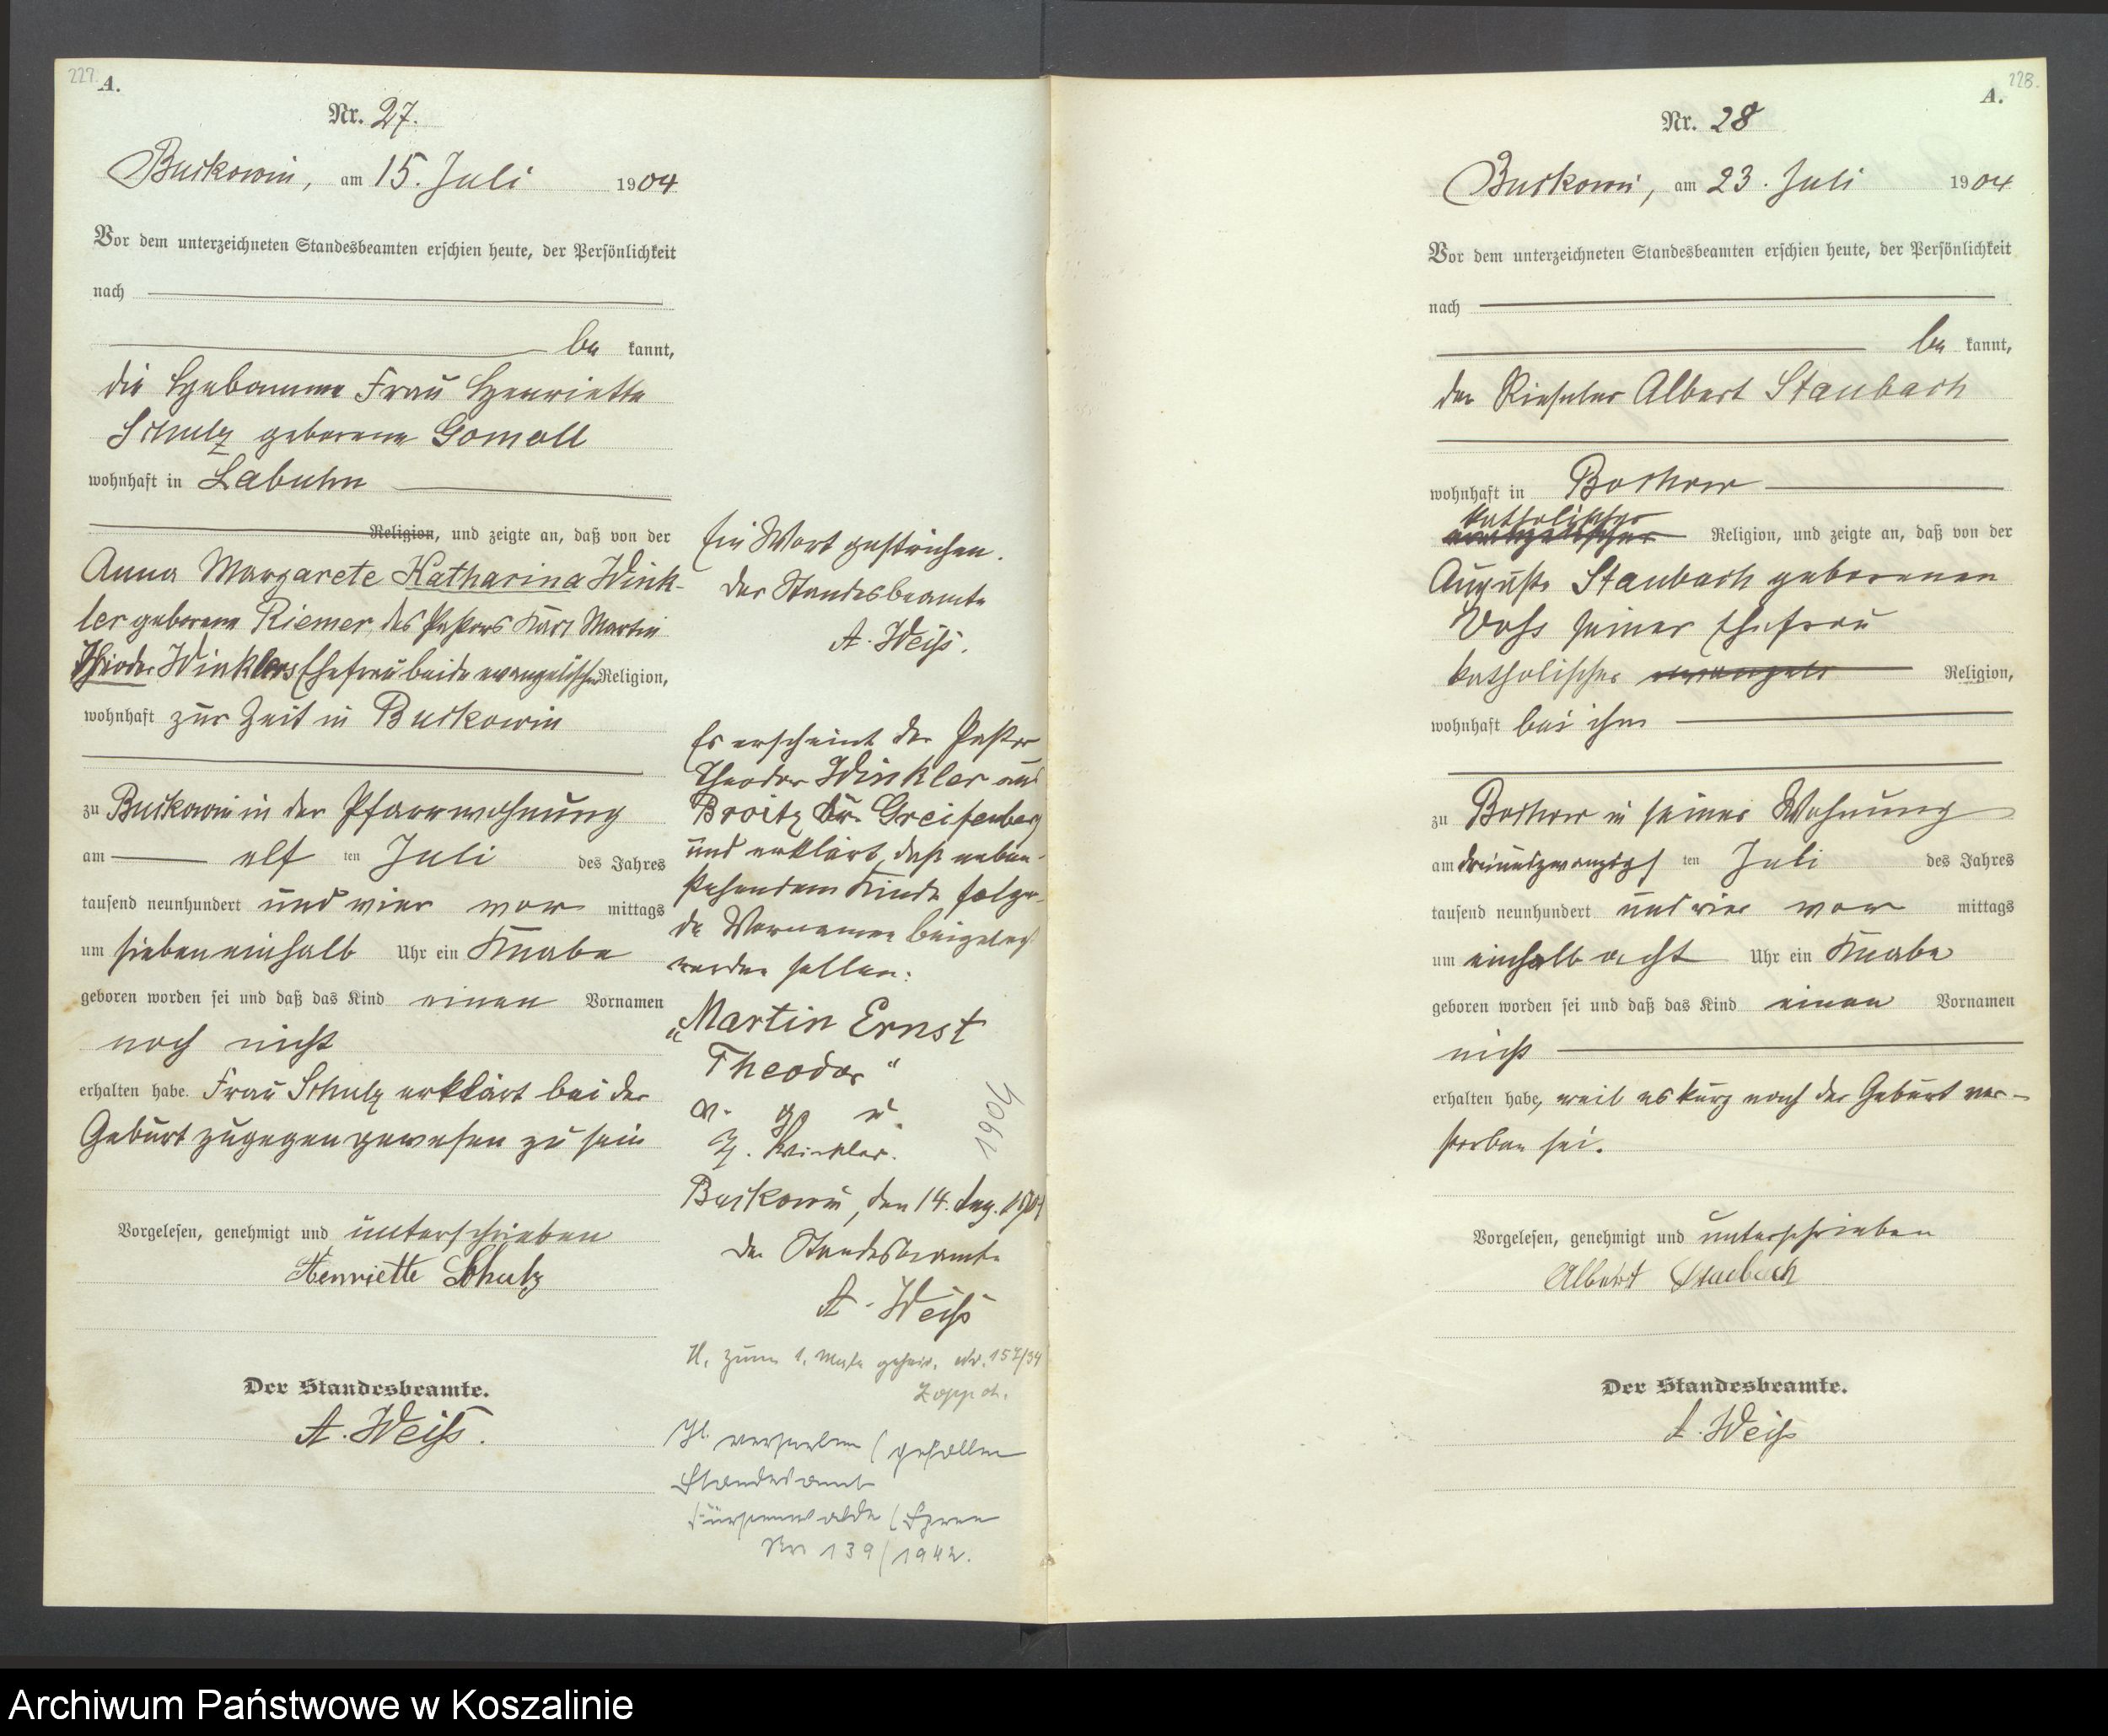 227. A.
Nr. 27.
Buckowin, am 15. Juli 1904
Vor dem unterzeichneten Standesbeamten erschien heute, der Persönlichkeit
nach
be kannt,
die Hebamme Frau Henriette
Schulz geborene Gomoll
wohnhaft in Labuhn
Religion, und zeigte an, daß von der
Anna Margarete Katharina Wink-
ler geborene Riemer, des Pastors Karl Martin
Theodor Winklers Ehefrau beide evangelischer Religion,
wohnhaft zur Zeit in Buckowin
zu Buckowin in der Pfarrwohnung
am elf ten Juli des Jahres
tausend neunhundert und vier vor mittags
um sieben einhalb Uhr ein Knabe
geboren worden sei und daß das Kind einen Vornamen
noch nicht
erhalten habe. Frau Schulz erklärt bei der
Geburt zugegen gewesen zu sein
Vorgelesen, genehmigt und unterschrieben
Henriette Schulz
Der Standesbeamte.
A. Weiß.
Ein Wort gestrichen.
Der Standesbeamte
A. Weiß.
Es erscheint der Pastor
Theodor Winkler aus
Broitz Kr. Greifenberg
und erklärt, daß neben-
stehendem Kinde folgen-
de Vornamen beigelegt
werden sollen:
"Martin Ernst
Theodor"
v. g. u.
Th. Winkler.
1904
Buckowin, den 14. Aug. 1904
Der Standesbeamte
A. Weiß
H. zum 1. Male geheir. Nr. 157/34
Zoppot.
H. verstorben (gefallen
Standesamt
Fürstenwalde (Spree
Nr 139/1942.
228. A.
Nr. 28
Buckowin, am 23. Juli 1904
Vor dem unterzeichneten Standesbeamten erschien heute, der Persönlichkeit
nach
be kannt,
der Rieseler Albert Staubach
wohnhaft in Bochow
katholischer
evangelischer Religion, und zeigte an, daß von der
Auguste Staubach geborenen
Voß seiner Ehefrau
katholischer evangel Religion,
wohnhaft bei ihm
zu Bochow in seiner Wohnung
am dreiundzwanzigs ten Juli des Jahres
tausend neunhundert und vier vor mittags
um einhalb acht Uhr ein Knabe
geboren worden sei und daß das Kind einen Vornamen
nicht
erhalten habe, weil es kurz nach der Geburt ver-
storben sei.
Vorgelesen, genehmigt und unterschrieben
Albert Staubach
Der Standesbeamte.
A. Weiß
Archiwum Państwowe w Koszalinie